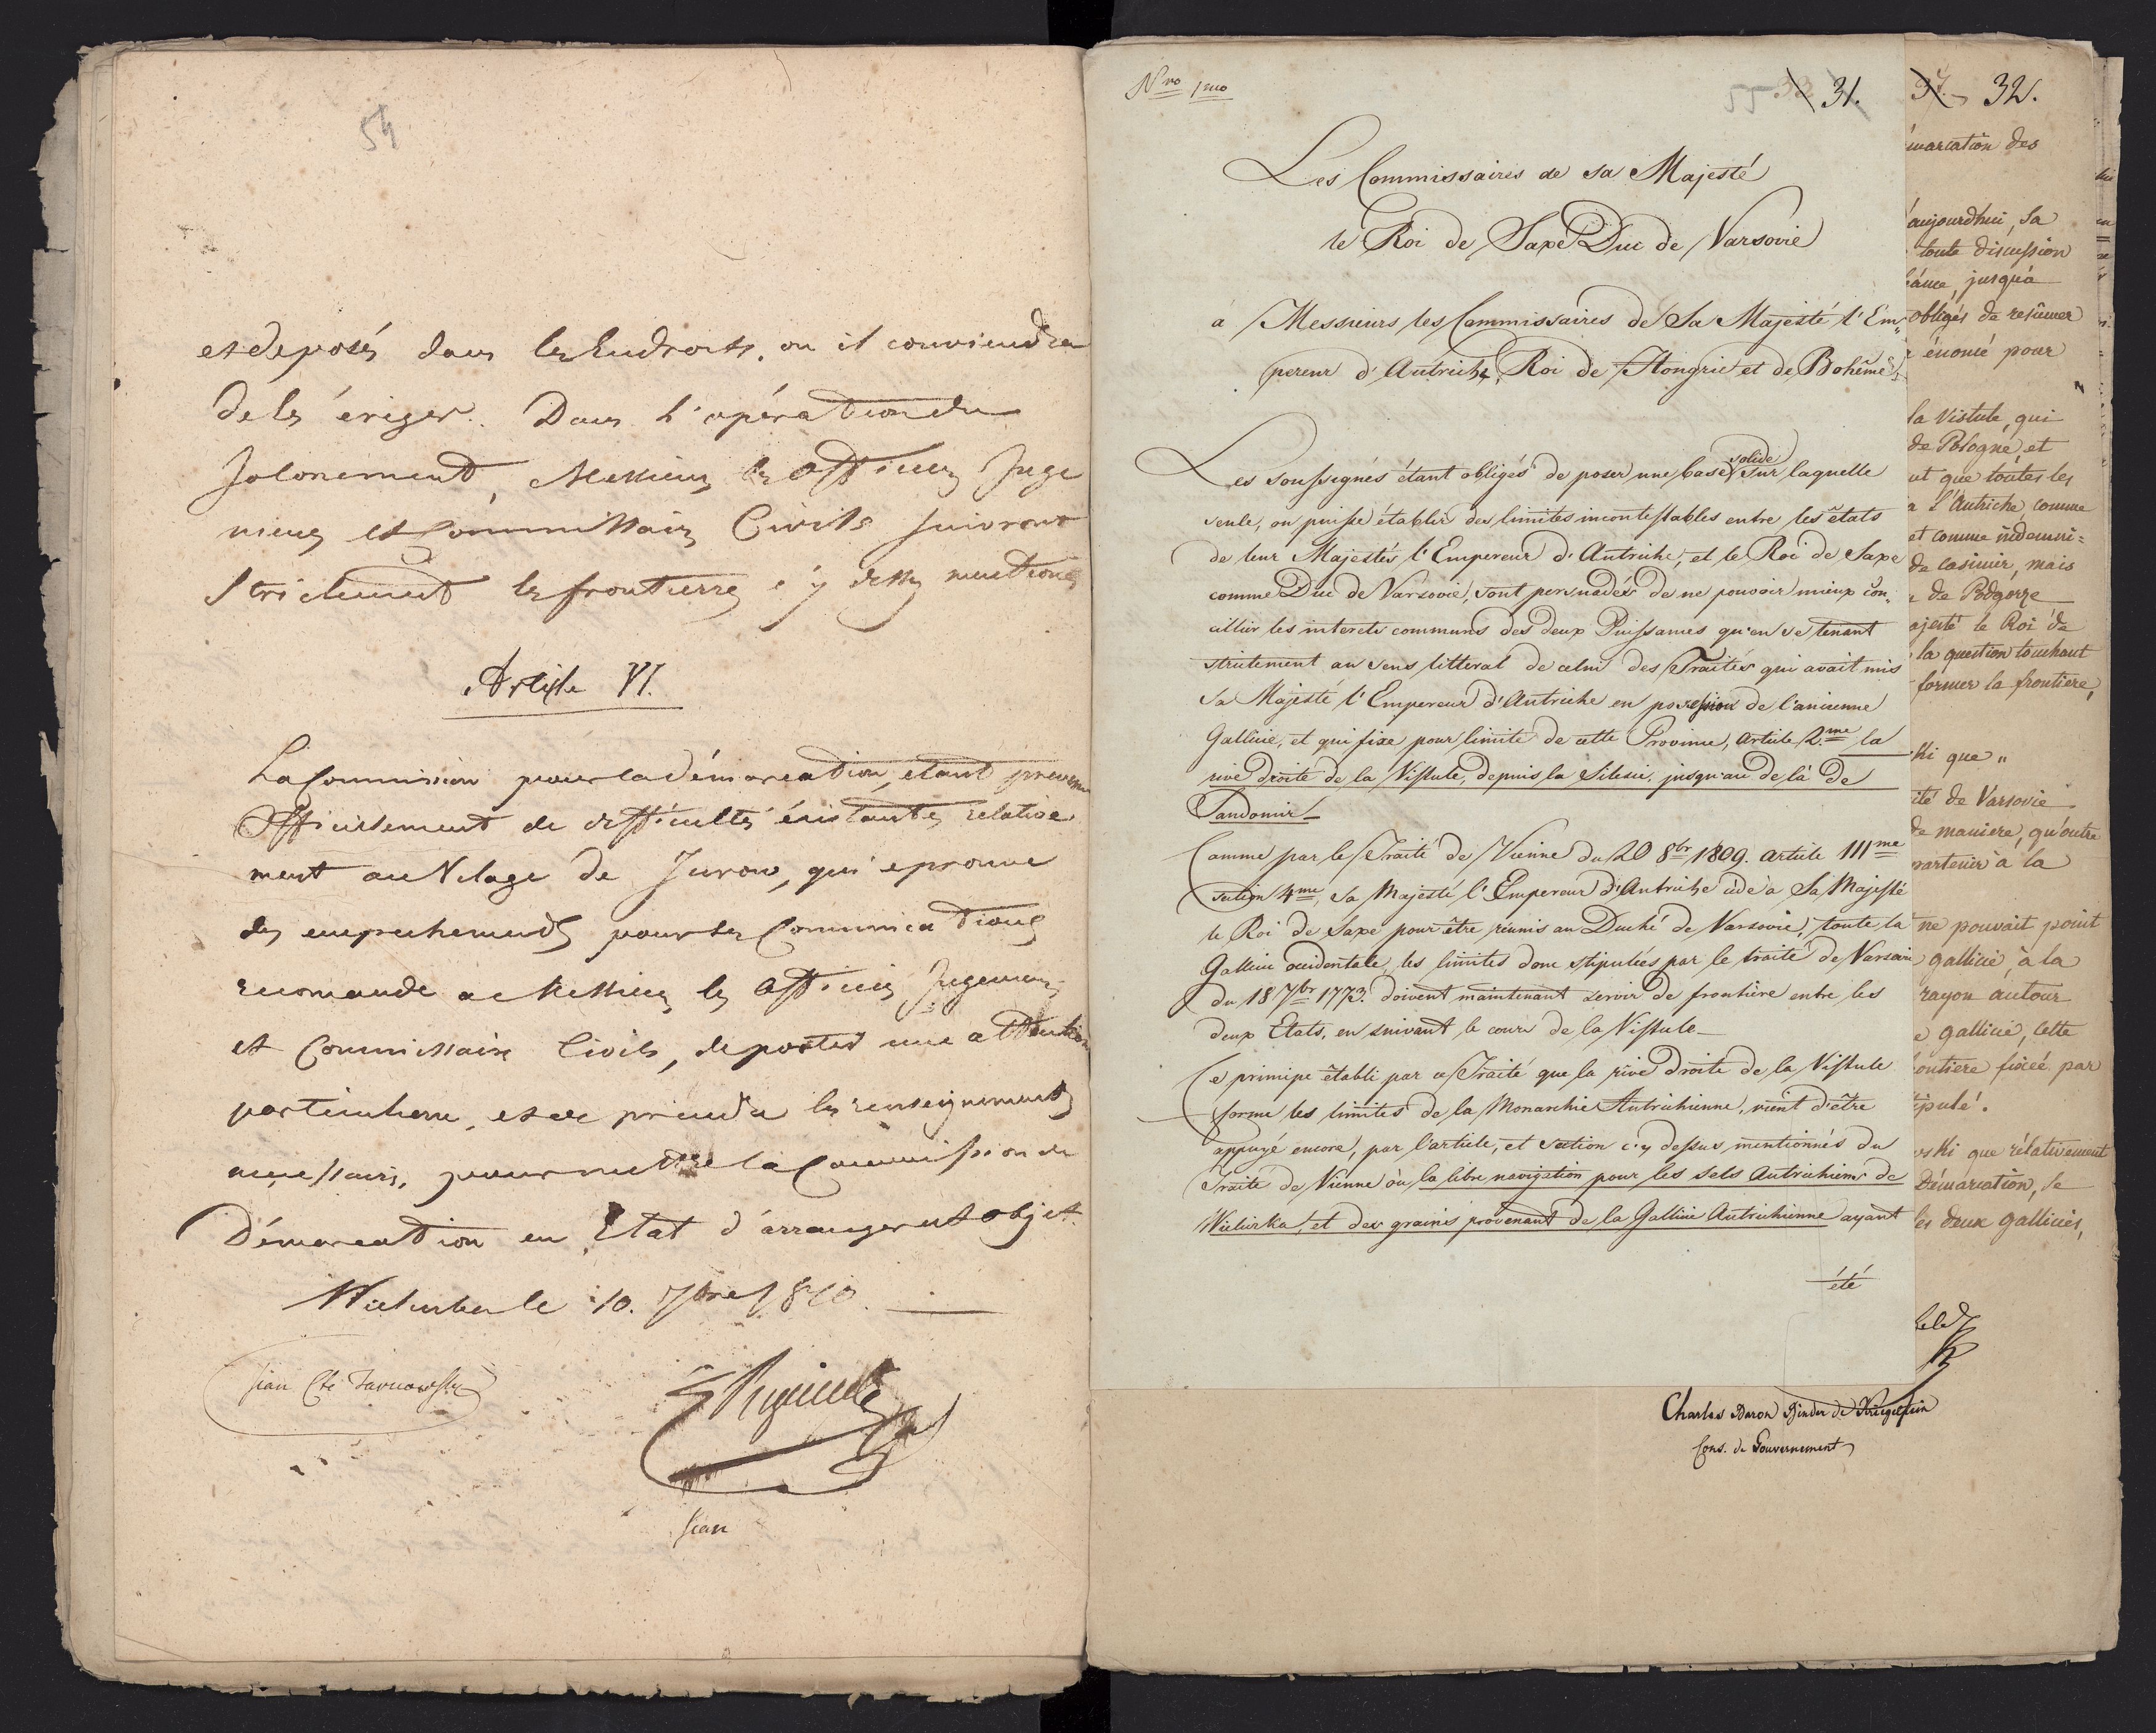 54
et deposés dans les Endroits, ou il conviendra
de les ériger. Dans l'opération du
Jalonement, Messieurs les officiers Inge
nieurs et Commissaires Civils suivront
strictement les frontierres c'y dessus mentionés
Article VI.
La Commission pour la démarcation, etant prevenue
Officiellement de difficultés éxistantes relative
ment au Vilage de Jurow, qui eprouve
des empechements pour ses Communications
recomande a Messieurs les officiers Ingenieurs
et Commissaires Civils, de porter une attention
particuliere, et de prendre les renseignements
necessaires, pour mettre la Commission de
Démarcation en Etat d'arranger cet objet.
le 10. 7bre 1810.
Jean Cte Tarnowski
Jean
Nro 1mo
55 31.
Les Commissaires de sa Majesté
le Roi de Saxe Duc de Varsovie
a Messieurs les Commissaires de Sa Majesté l'Em„
pereur d'Autriche, Roi de Hongrie et de Bohême.
Les soussignés étant obligés de poser une base solide sur laquelle
seule, on puisse établir des limites incontestables entre les états
de leur Majestés l'Empereur d'Autriche, et le Roi de Saxe
comme Duc de Varsovie, sont persuadés de ne pouvoir mieux con„
cillier les interets communs des deux Puissances qu'en se tenant
strictement au sens litteral de celui des Traités qui avait mis
sa Majesté l'Empereur d'Autriche en possession de l'ancienne
Gallicie, et qui fixe pour limite de cette Province, article 2.me la
rive droite de la Vistule, depuis la Silesie, jusqu'au de là de
Sandomir_
Comme par le Traité de Vienne du 20 8br 1809. article IIIme
section 4me, sa Majesté l'Empereur d'Autriche cede à Sa Majesté
le Roi de Saxe pour être réunis au Duché de Varsovie, toute la
Gallicie occidentale, les limites donc stipulées par le traité de Varsovie
du 18 7br 1773. doivent maintenant servir de frontière entre les
deux Etats, en suivant le cours de la Vistule_
Ce principe établi par ce Traité que la rive droite de la Vistule
forme les limites de la Monarchie Autrichienne, vient d'être
appuyé encore, par l'article, et section c'y dessus mentionnés du
Traité de Vienne où la libre navigation pour les sels Autrichiens de
Wieliczka, et des grains provenant de la Gallicie Autrichienne ayant
été
32.
marcation des
aujourdhui, sa
toute discussion
jusqu'à
obligés de resumer
énoncé pour
la Vistule, qui
de Pologne, et
ut que toutes les
a l'Autriche, comme
et comme indemni=
de casimir, mais
de Podgorze
ajesté le Roi de
la question touchant
former la frontiere,
ki que „
ité de Varsovie
de maniere, qu'outre
partenir à la
ne pouvait point
gallicie, à la
rayon autour
e gallicie, cette
ontiere fixée par
ipulé.
ski que rélativement
Démarcation, se
les deux gallicies,
Charles Baron Binder de Kriegelstein
Cons. de Gouvernement